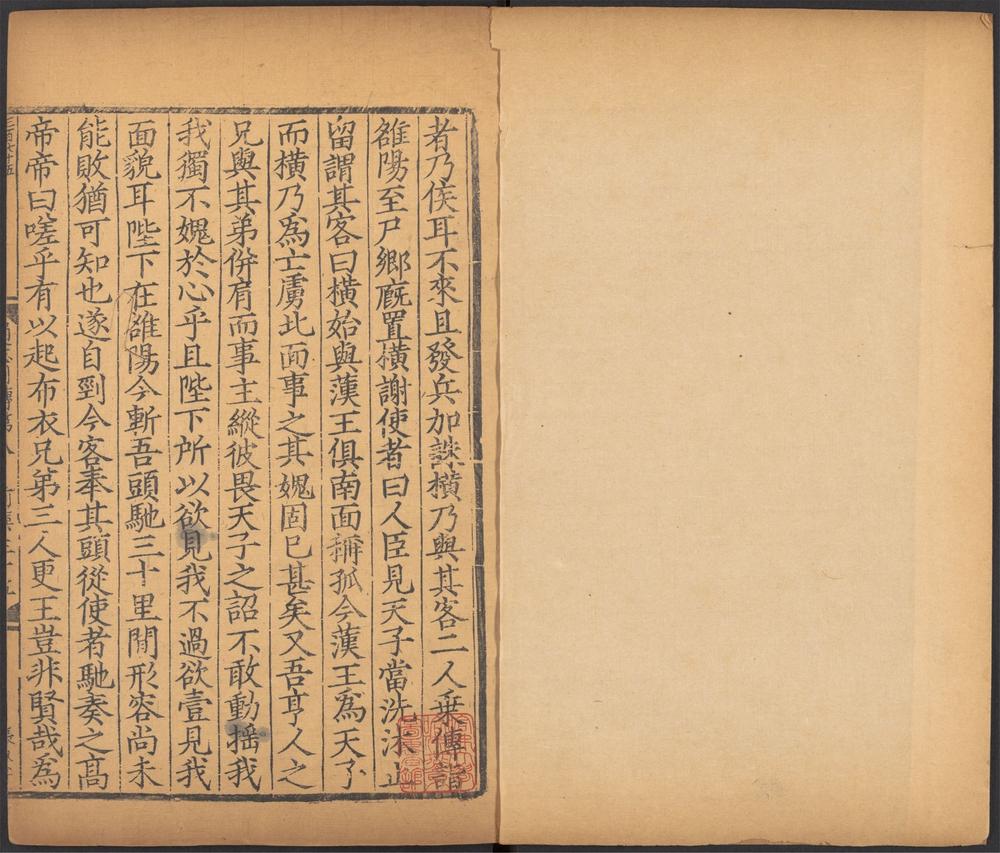 者乃侯耳不來且發兵加誅橫乃與其客二人乗傳詣
雒陽至尸鄉廐置橫謝使者曰人臣見天子當洗沐止
留謂其客曰橫始與漢王俱南面稱孤今漢王爲天子
而橫乃爲亡虜北面事之其媿固已甚矣又吾亨人之
兄與其弟併肩而事主縱彼畏天子之詔不敢動搖我
我獨不媿於心乎且陛下所以欲見我不過欲壹見我
面貌耳陛下在雒陽今斬吾頭馳三十里間形容尚未
能敗猶可知也遂自剄令客奉其頭從使者馳奏之高
帝帝曰嗟乎有以起布衣兄弟三人更王豈非賢哉爲